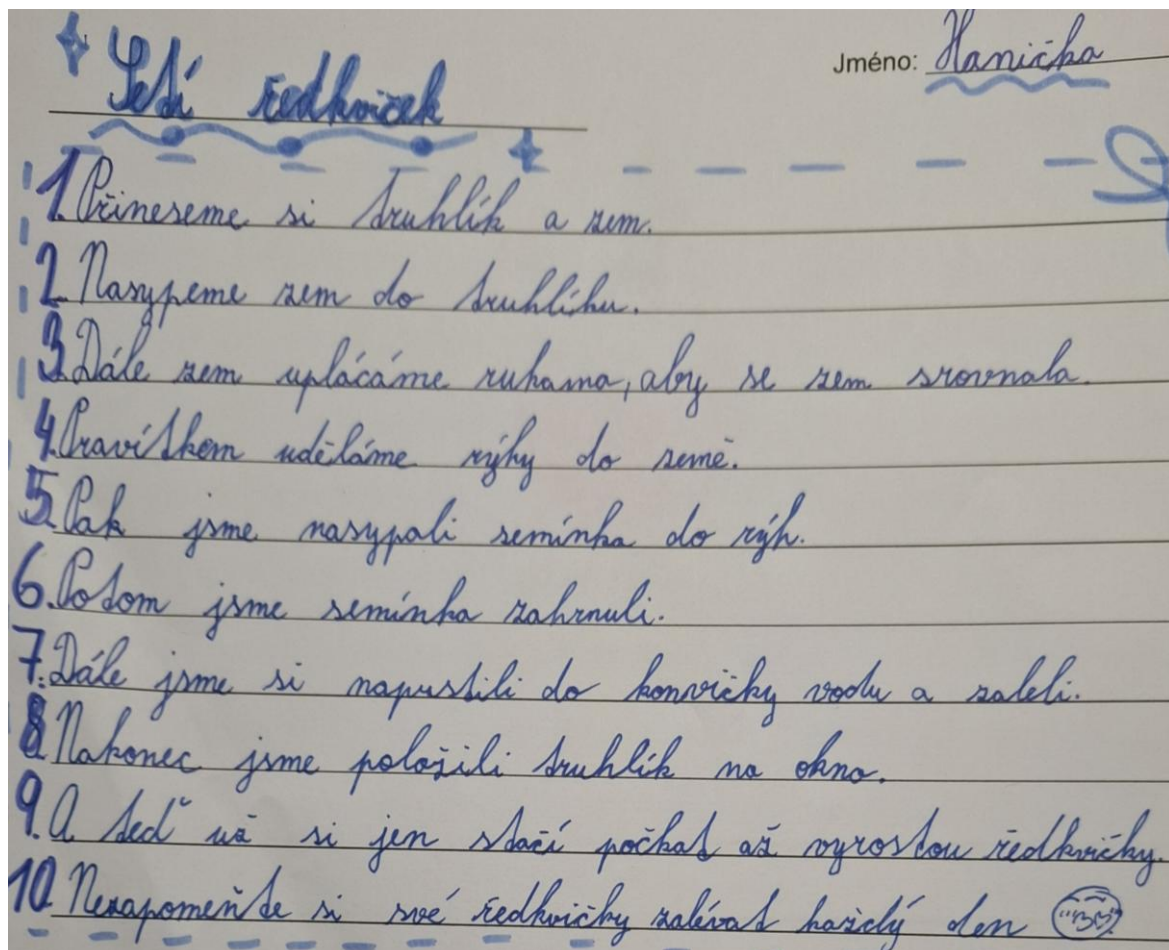 Jméno: Hanička
Setí ředkviček
1. Přineseme si truhlík a zem.
2. Nasypeme zem do truhlíku.
3. Dále zem uplácáme rukama, aby se zem srovnala.
4. Pravítkem uděláme rýhy do země.
5. Pak jsme nasypali semínka do rýh.
6. Potom jsme semínka zahrnuli.
7. Dále jsme si napustili do konvičky vodu a zaleli.
8. Nakonec jsme položili truhlík na okno.
9. A teď už si jen stačí počkat až vyrostou ředkvičky.
10. Nezapomeňte si své ředkvičky zalévat každý den